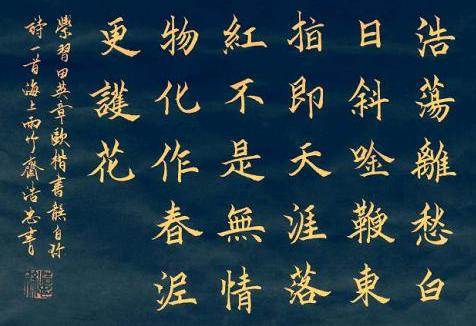 浩蕩離愁白
日斜唫鞭東
指即天涯落
紅不是無情
物化作春泥
更護花
學習田英章歐楷書龔自珎
詩一首海上雨竹齋浩書